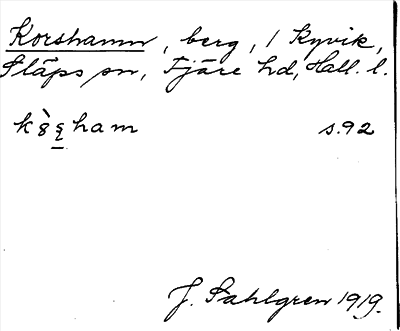 Korshamn, berg, / Kyvik,
Släps sn, Fjäre hd, Hall. l.
kȣ̀ʂham s. 92
J. Sahlgren 1919.